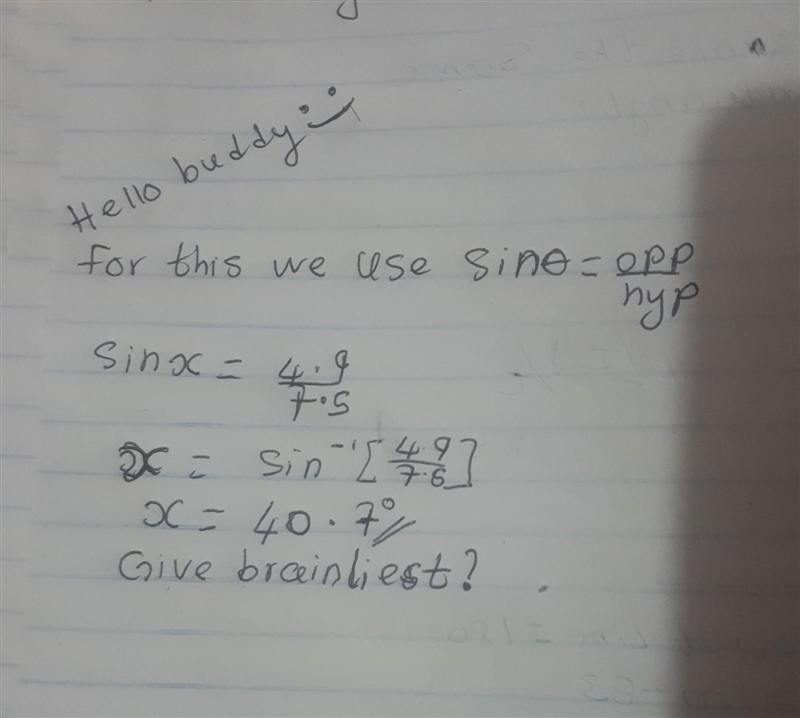 Hello buddy :)
for this we use sinθ = opp/hyp
sinx = 4.9/7.5
x = sin⁻¹[4.9/7.6]
x = 40.7°
Give brainliest?